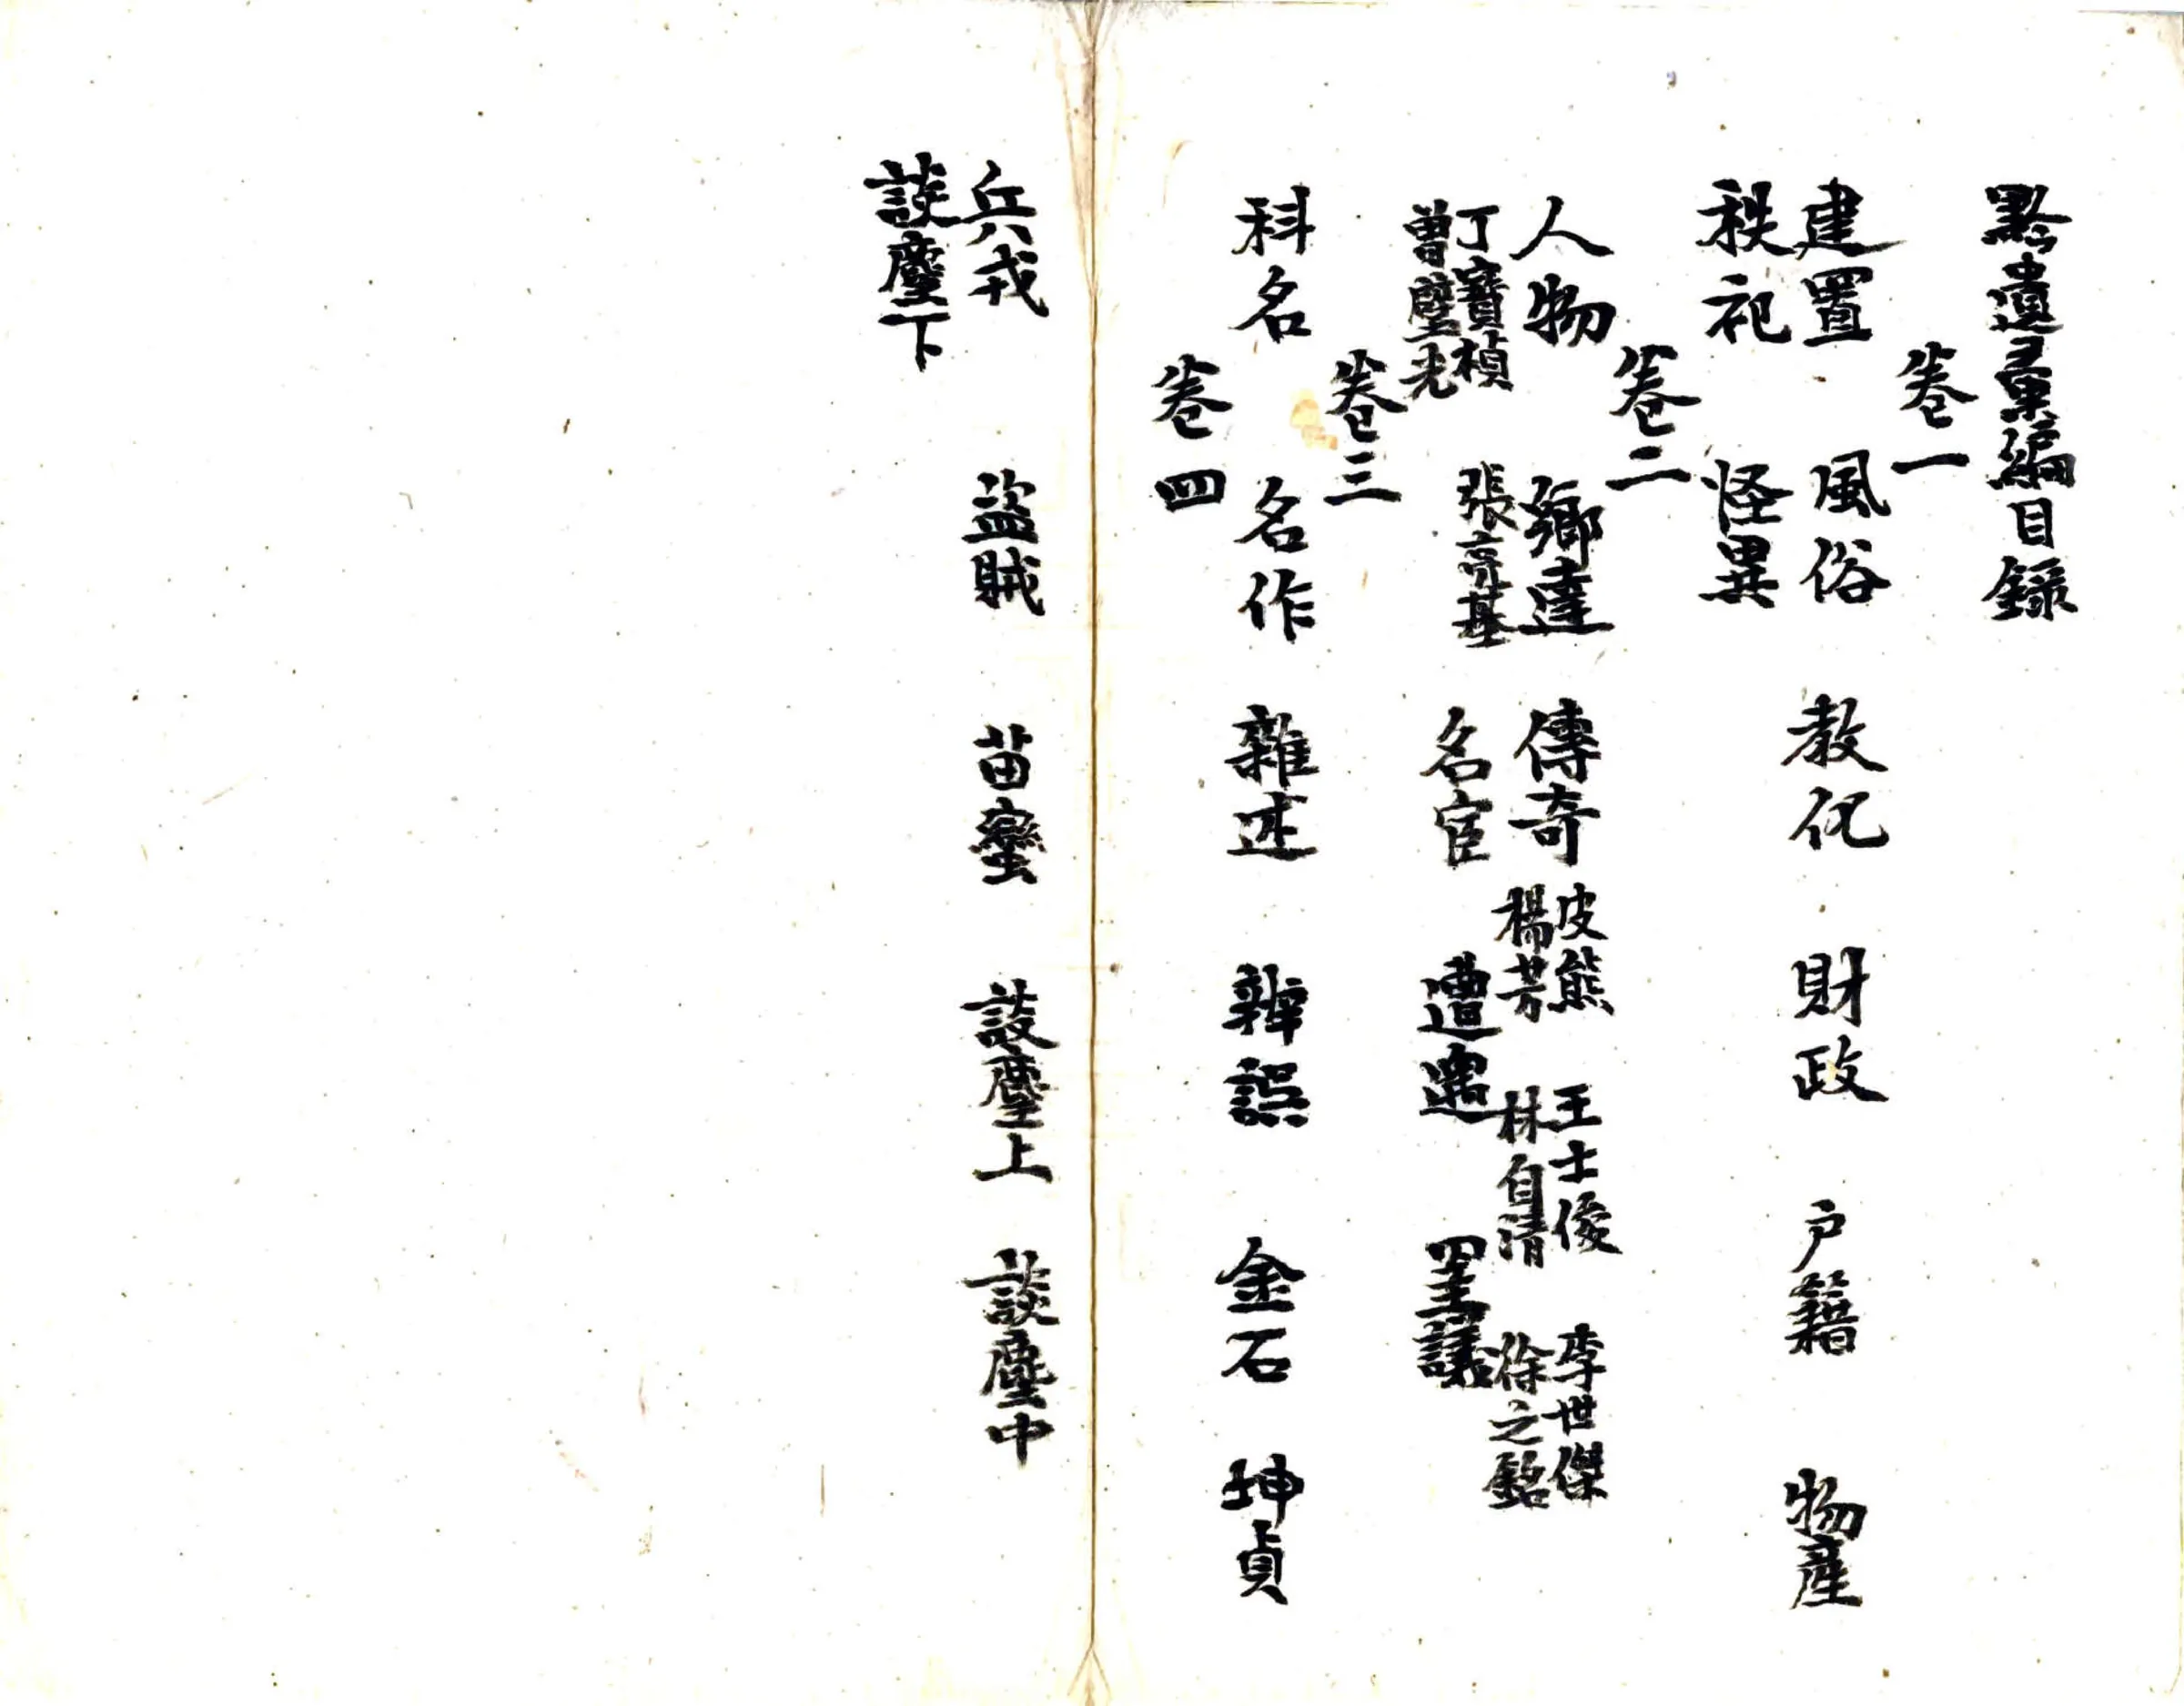 黔遺彙編目錄
卷一
建置 風俗 教化 財政 户籍 物産
秩祀 怪異
卷二
人物 鄉達 傳奇 皮熊 王士俊 李世傑
楊芳 林自清 徐之銘
丁寶楨 張亮基
曾璧光 名宦 遭遇 罣議
卷三
科名 名作 雜述 辨誤 金石 坤貞
卷四
兵戎 盜賊 苗蠻 談麈上 談麈中
談麈下